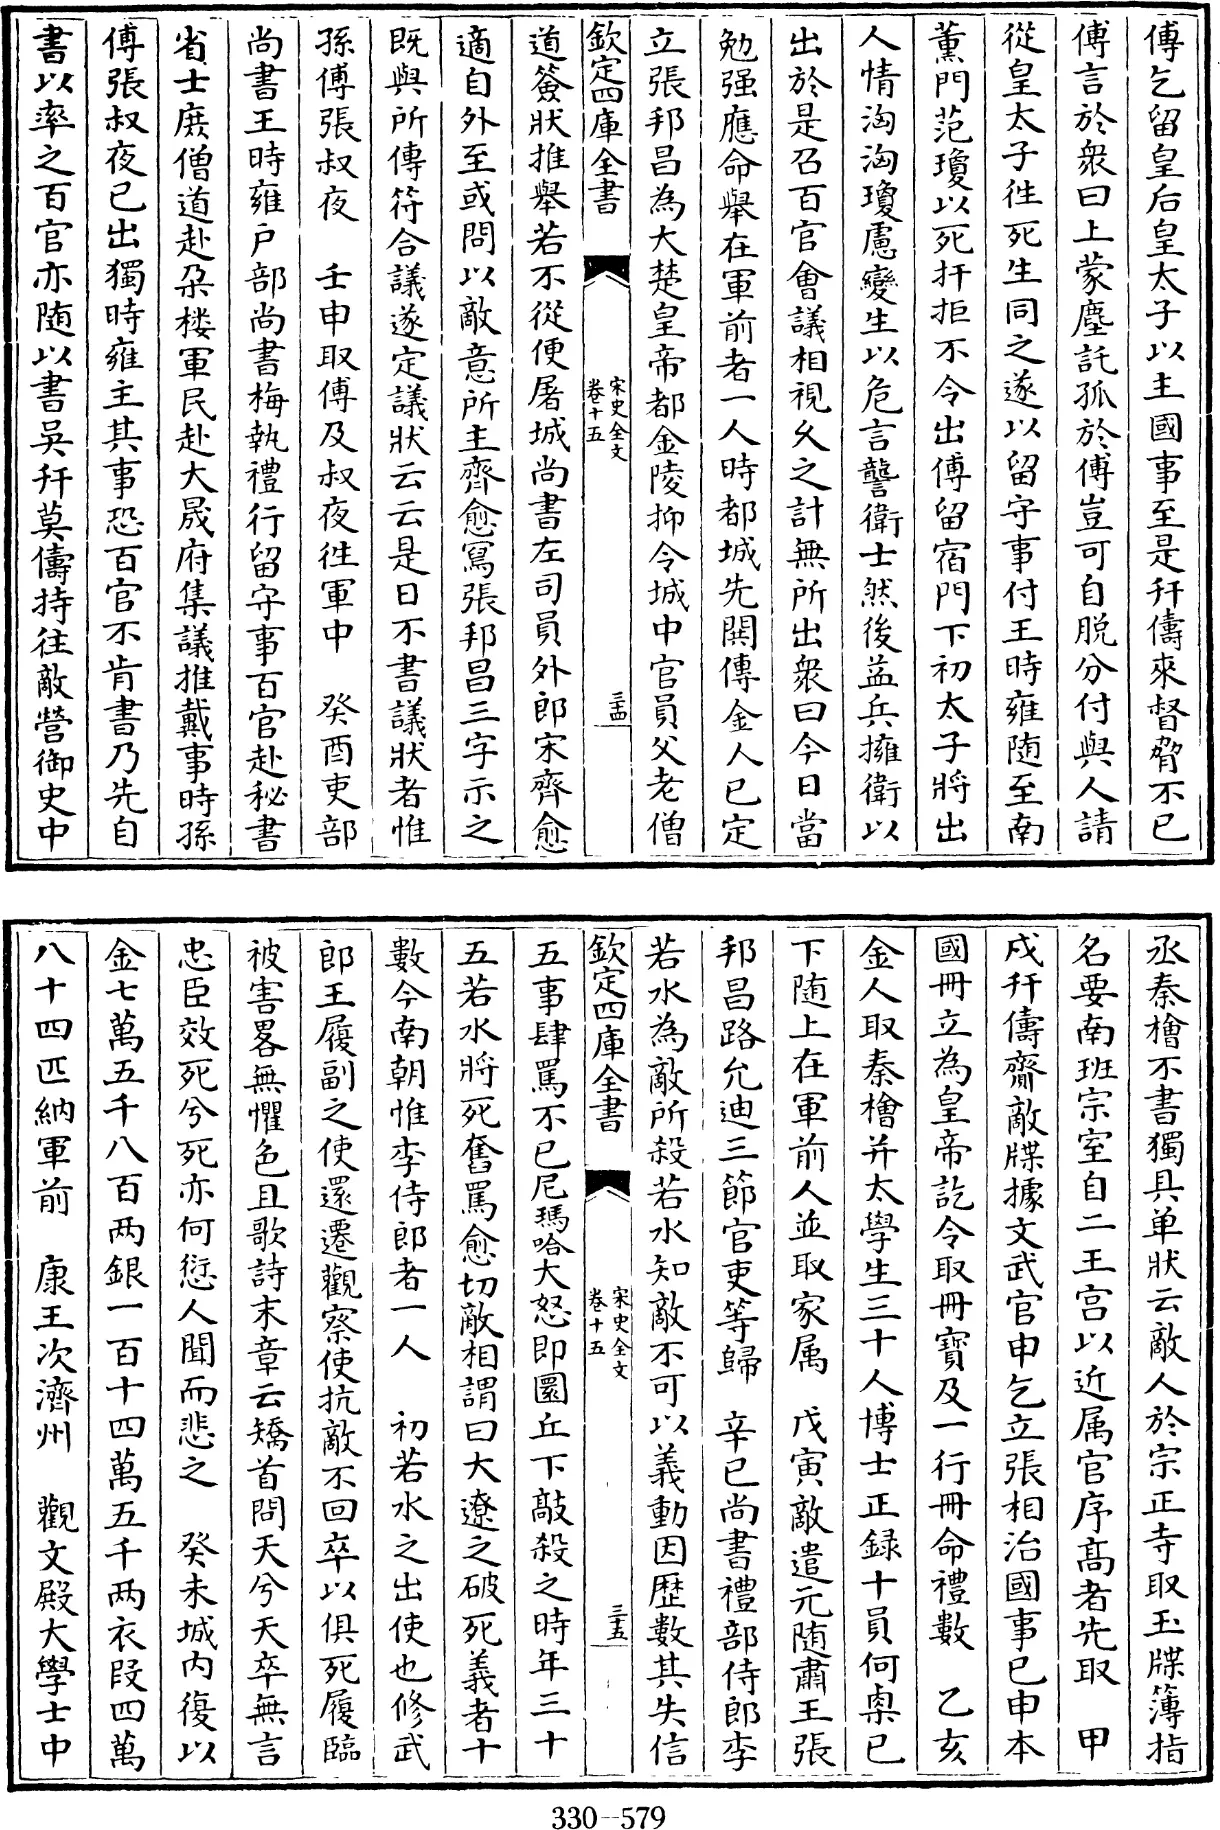 傅乞留皇后皇太子以主國事至是幵儔來督脅不已
傅言於衆曰上蒙塵託孤於傅豈可自脱分付與人請
從皇太子徃死生同之遂以留守事付王時雍随至南
薰門范瓊以死扞拒不令出傅留宿門下初太子將出
人情洶洶瓊慮變生以危言讋衛士然後益兵擁衛以
出於是召百官會議相視乆之計無所出衆曰今日當
勉强應命舉在軍前者一人時都城先閧傳金人已定
立張邦昌為大楚皇帝都金陵抑令城中官員父老僧
欽定四庫全書
宋史全文
卷十五
三四
道簽狀推舉若不從便屠城尚書左司員外郎宋齊愈
適自外至或問以敵意所主齊愈寫張邦昌三字示之
既與所傳符合議遂定議狀云云是日不書議狀者惟
孫傅張叔夜 壬申取傅及叔夜徃軍中 癸酉吏部
尚書王時雍户部尚書梅執禮行留守事百官赴秘書
省士庶僧道赴朶楼軍民赴大晟府集議推戴事時孫
傅張叔夜已出獨時雍主其事恐百官不肯書乃先自
書以率之百官亦随以書吳幵莫儔持往敵營御史中
丞秦檜不書獨具单狀云敵人於宗正寺取玉牒簿指
名要南班宗室自二王宫以近属官序髙者先取 甲
戌幵儔齎敵牒據文武官申乞立張相治國事已申本
國冊立為皇帝訖令取冊寳及一行冊命禮數 乙亥
金人取秦檜并太學生三十人博士正録十員何㮚已
下随上在軍前人並取家属 戊寅敵遣元随肅王張
邦昌路允迪三節官吏等歸 辛已尚書禮部侍郎李
若水為敵所殺若水知敵不可以義動因歴數其失信
欽定四庫全書
宋史全文
卷十五
三五
五事肆罵不已尼瑪哈大怒即圜丘下敲殺之時年三十
五若水將死奮罵愈切敵相謂曰大遼之破死義者十
數今南朝惟李侍郎者一人 初若水之出使也修武
郎王履副之使還遷觀察使抗敵不回卒以俱死履臨
被害畧無懼色且歌詩末章云矯首問天兮天卒無言
忠臣效死兮死亦何愆人聞而悲之 癸未城内復以
金七萬五千八百两銀一百十四萬五千两衣段四萬
八十四匹納軍前 康王次濟州 觀文殿大學士中
330--579